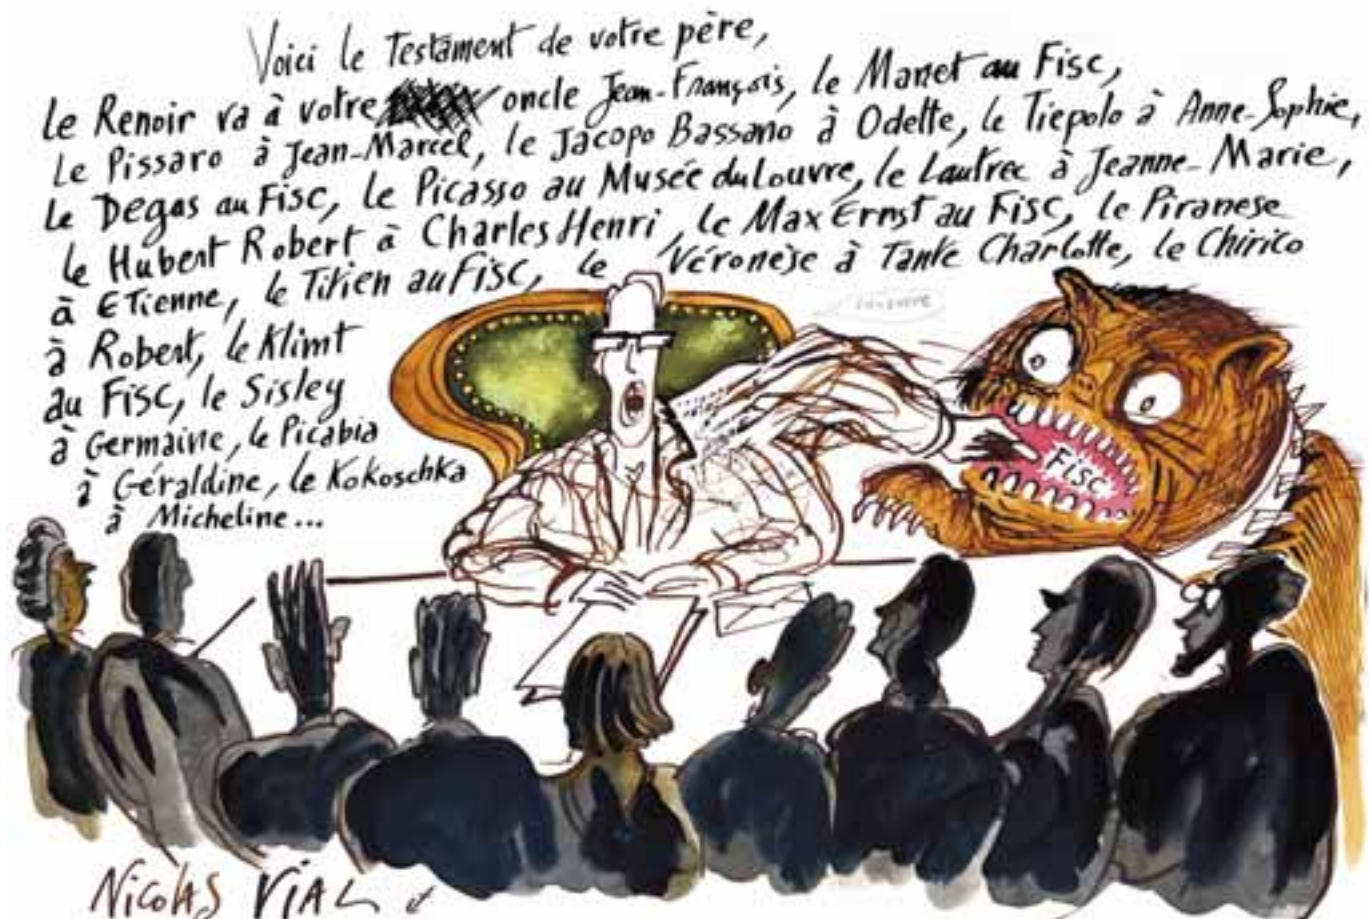 Voici le Testament de votre père,
le Renoir va à votre oncle Jean-François, le Manet au Fisc,
le Pissaro à Jean-Marcel, le Jacopo Bassano à Odette, le Tiepolo à Anne-Sophie,
le Degas au Fisc, le Picasso au Musée du Louvre, le Lautrec à Jeanne-Marie,
le Hubert Robert à Charles Henri, le Max Ernst au Fisc, le Piranese
à Etienne, le Titien au Fisc, le Véronèse à Tante Charlotte, le Chirico
à Robert, le Klimt
au Fisc, le Sisley
à Germaine, le Picabia
à Géraldine, le Kokoschka
à Micheline...
FISC
Nicolas Vial